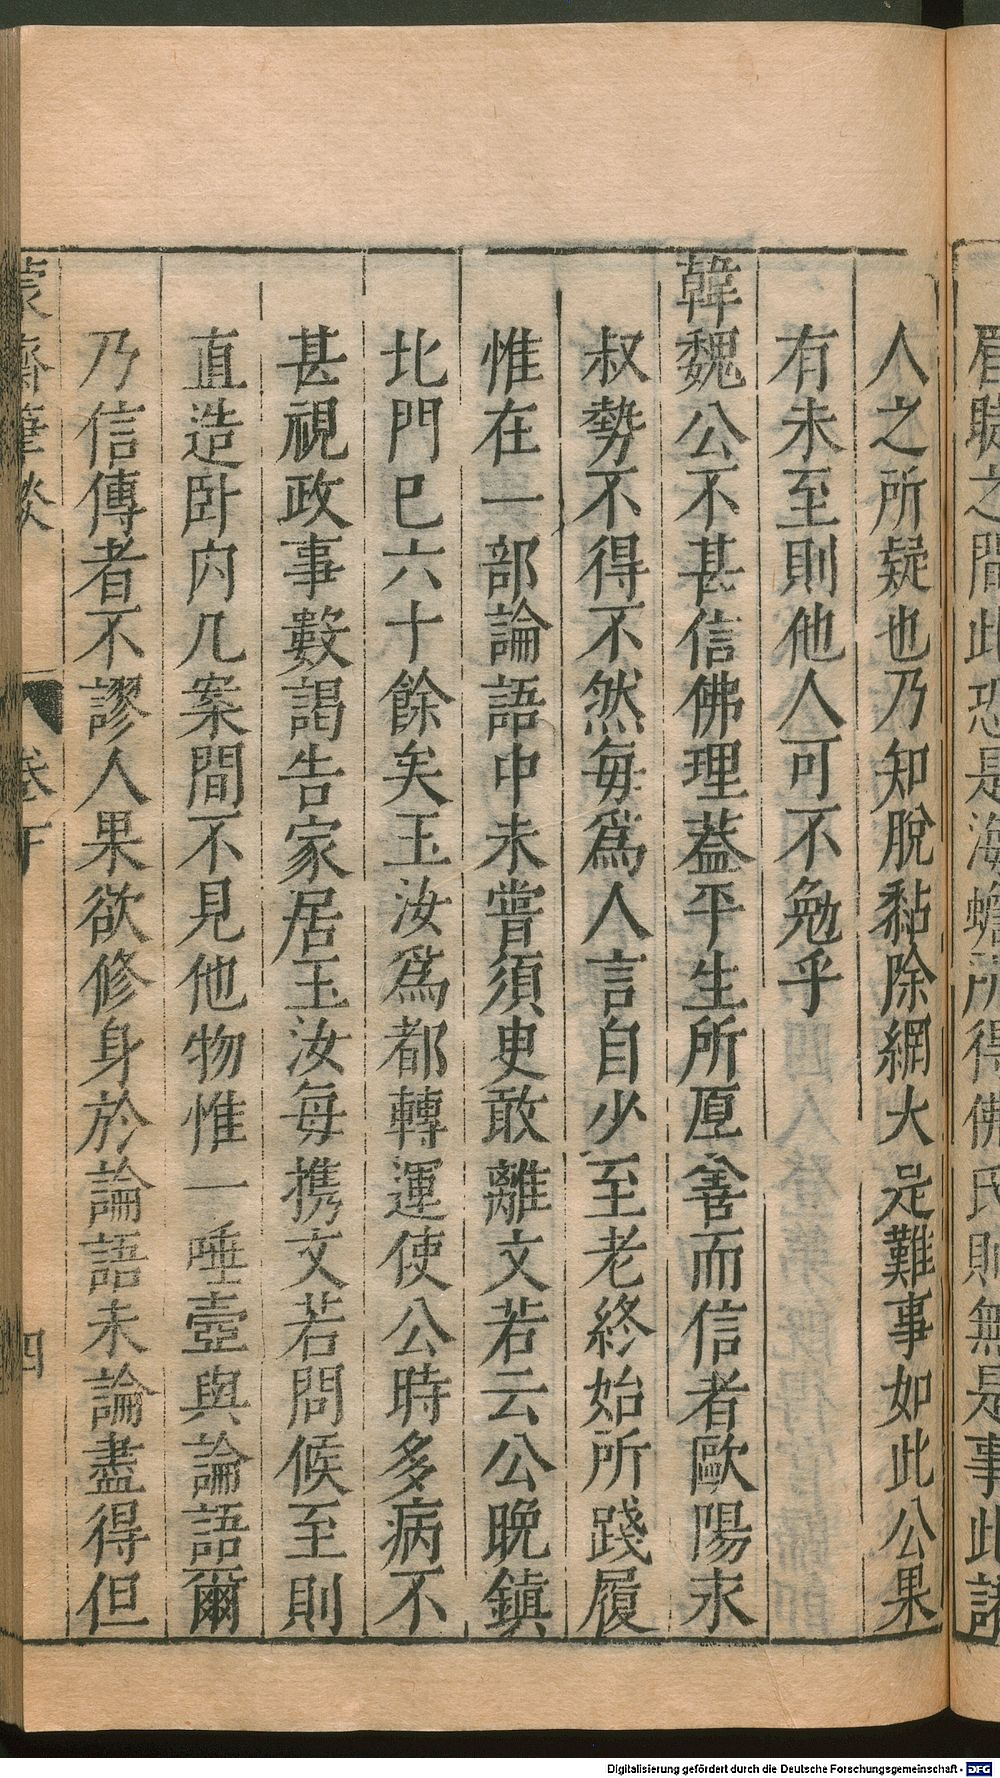 眉睫之間此恐是海蟾所得佛氏則無是事此諸
人之所疑也乃知脫黏除網大是難事如此公果
有未至則他人可不勉乎
韓魏公不甚信佛理蓋平生所厚善而信者歐陽永
叔勢不得不然每爲人言自少至老終始所踐履
惟在一部論語中未嘗須臾敢離文若云公晚鎮
北門已六十餘矣玉汝爲都轉運使公時多病不
甚視政事數謁告家居玉汝每携文若問候至則
直造卧内几案間不見他物惟一唾壺與論語爾
乃信傳者不謬人果欲修身於論語未論盡得但
蒙齋筆談 卷下 四
Digitalisierung gefördert durch die Deutsche Forschungsgemeinschaft - DFG